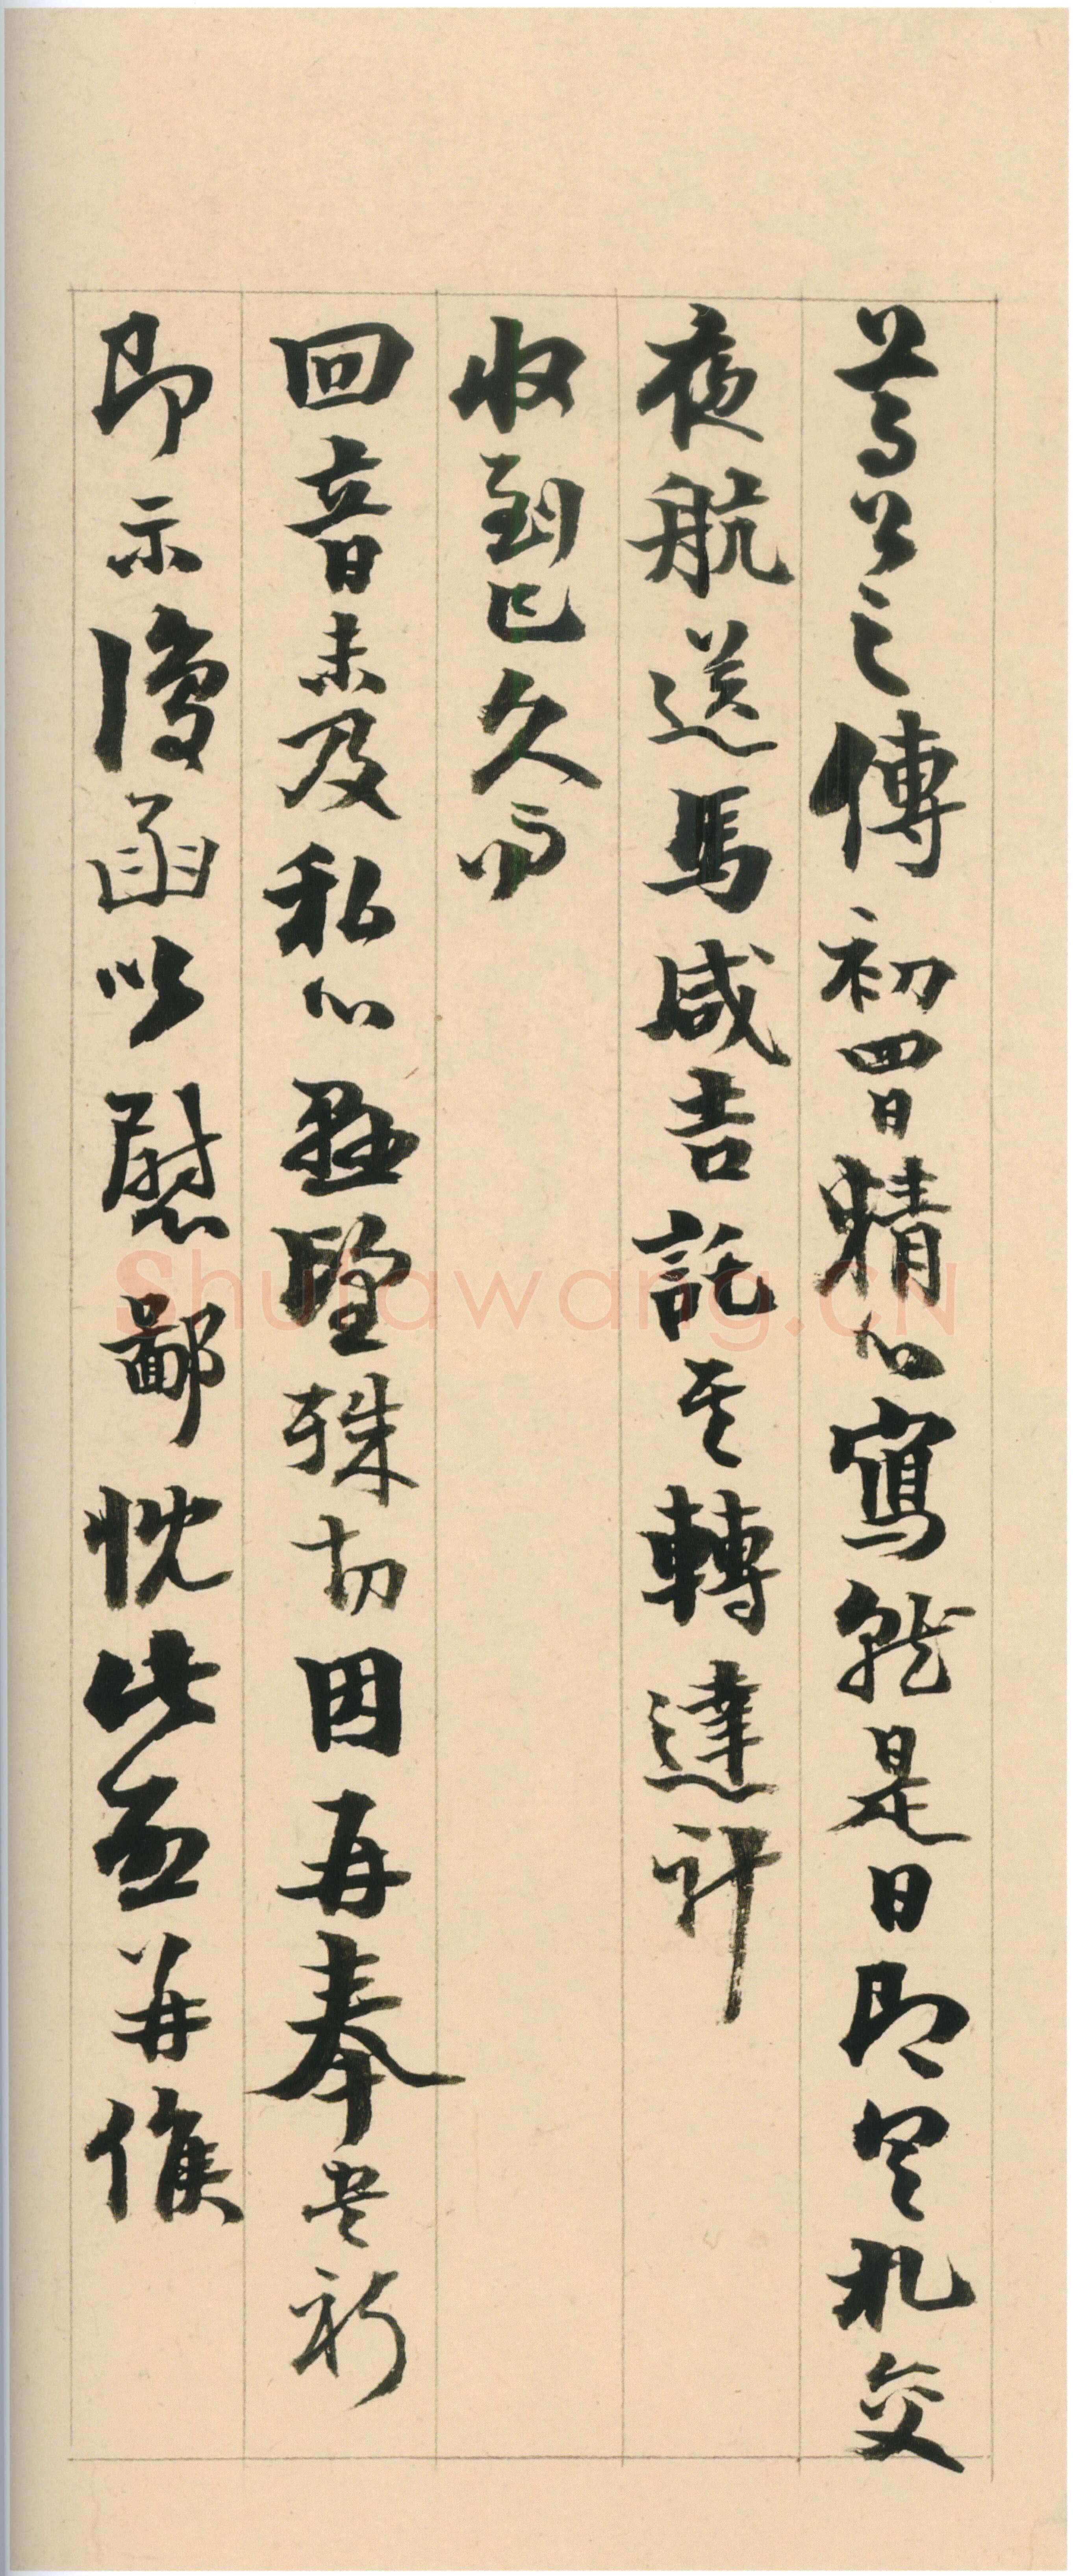 公之傳初四日精心寫就是日即具札交
夜航送馬咸吉託其轉達計
收到已久而
回音未及私心懸望殊切因再奉書祈
即示復函以慰鄙忱此並并候
Shufawang.CN